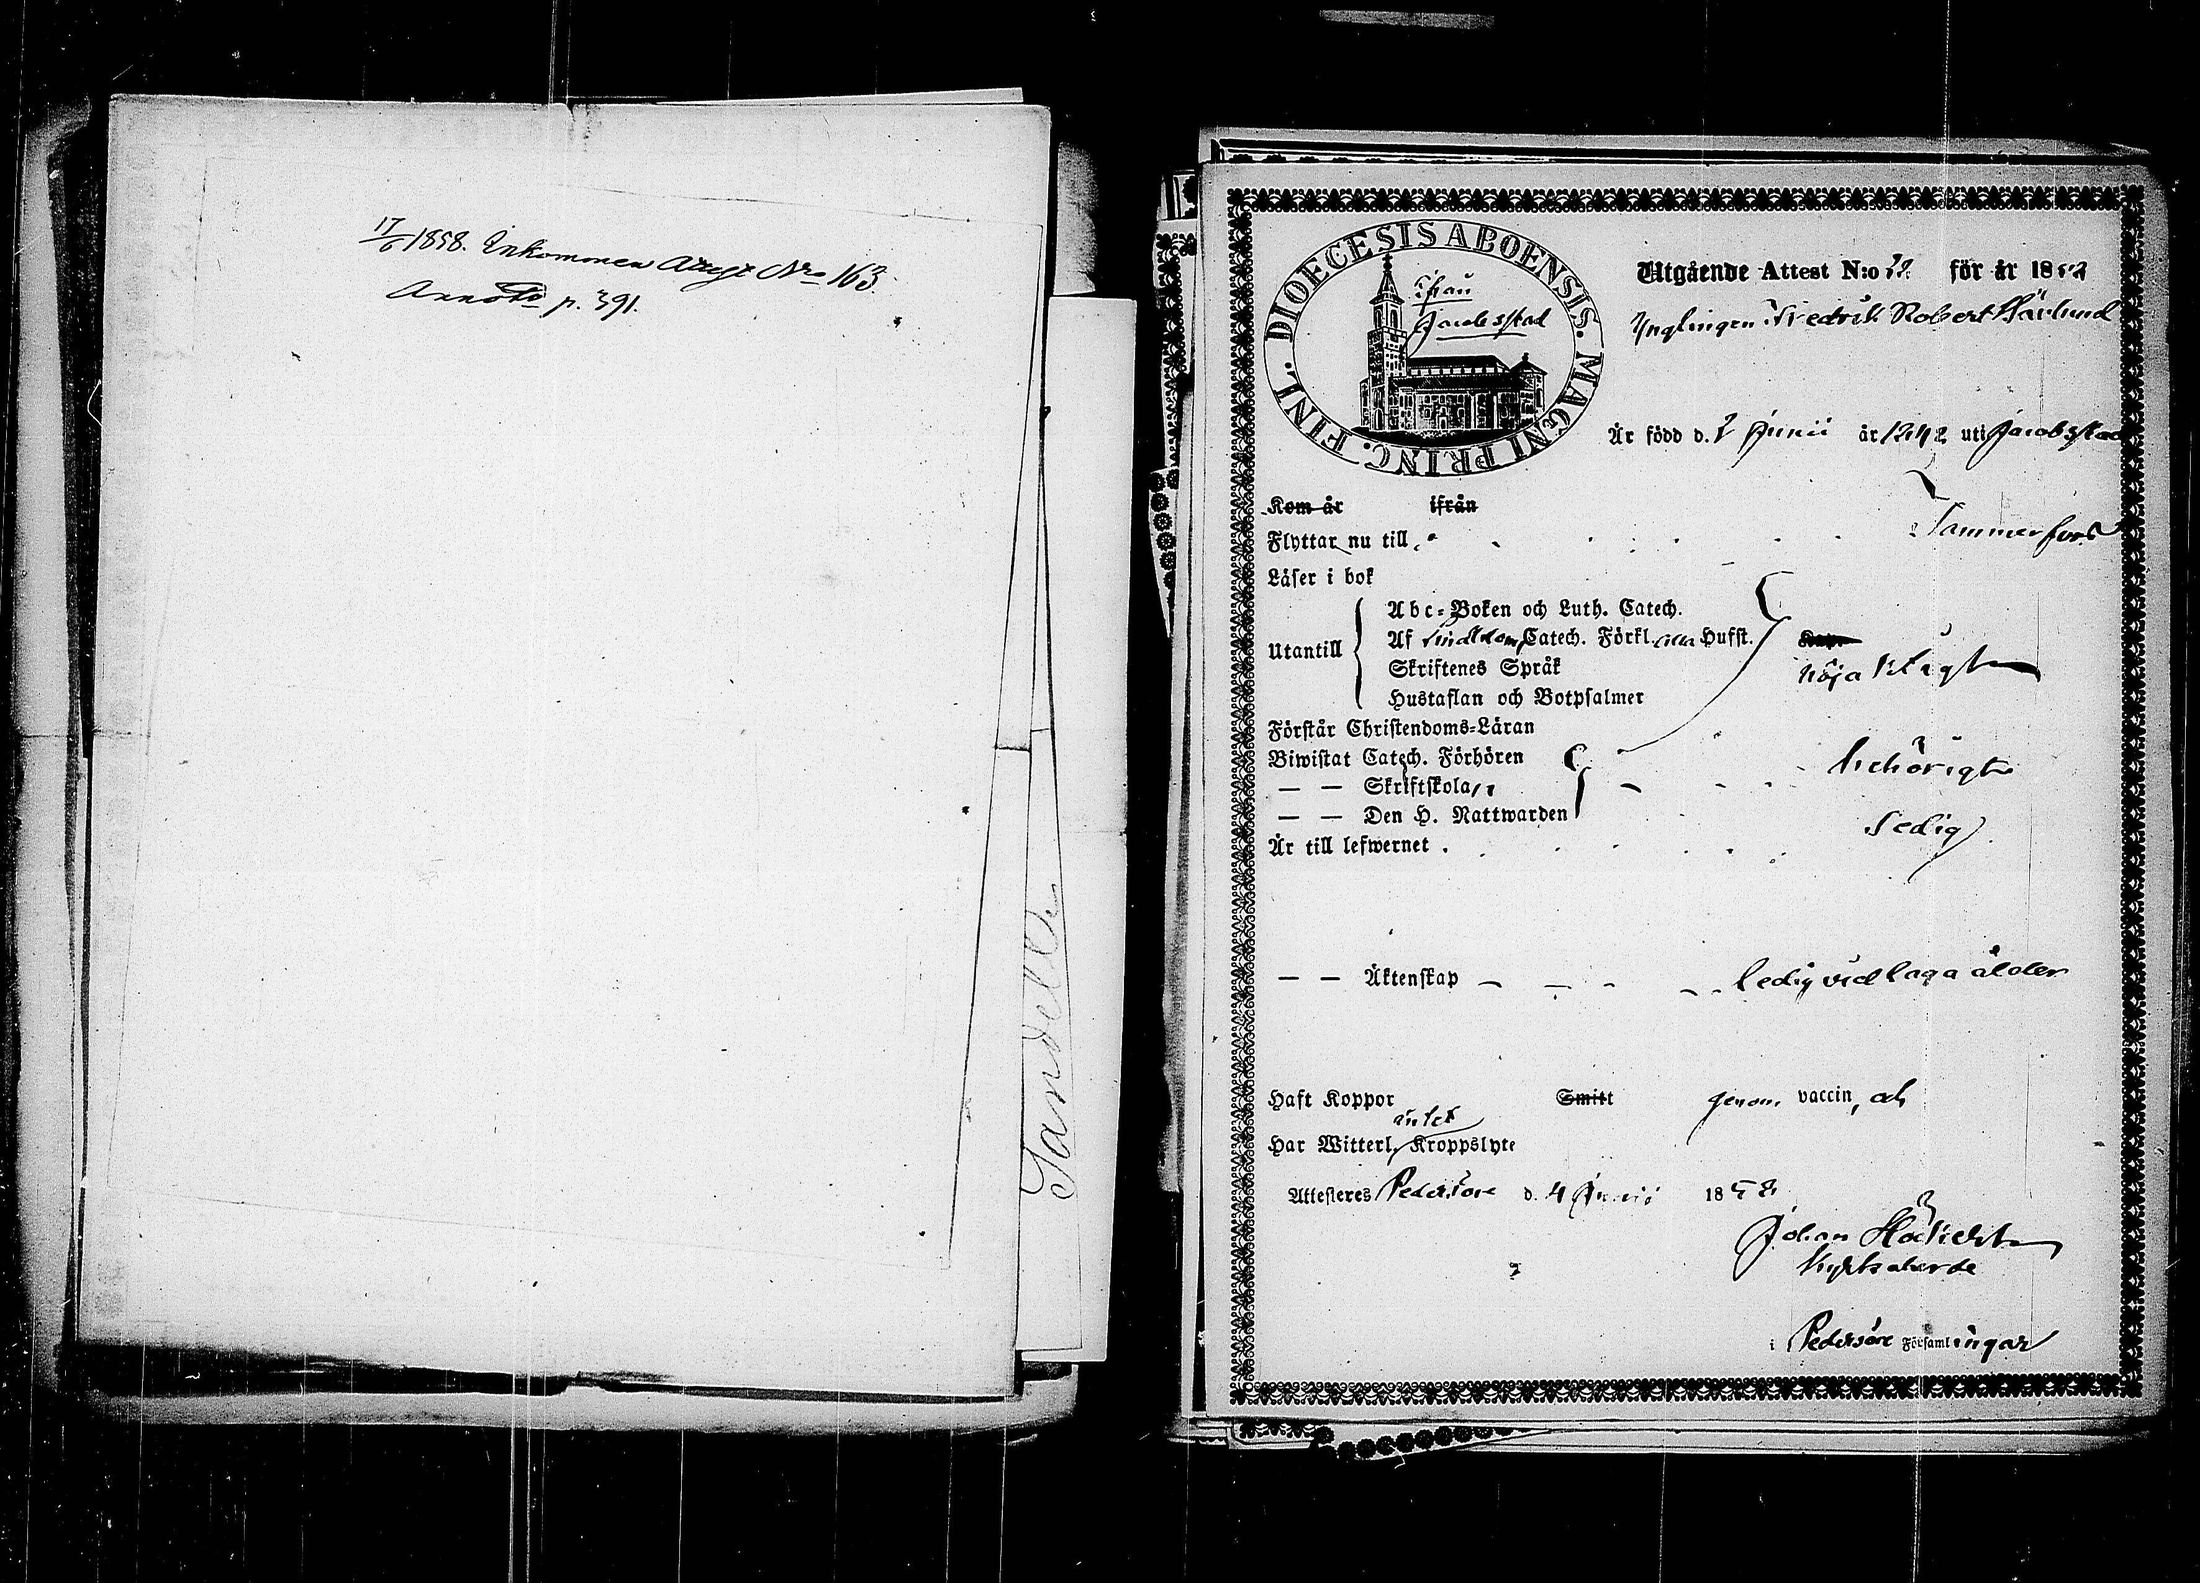 17/6 1858. Inkommen Attest Nro 163.
Annotd p. 391.
Sandell
DIOECESIS ABOENSIS. MAGNI PRINC. FINL.
ifrån
Jacobsstad
Utgående Attest N:o för år 1858
Ynglingen Fredrik Robert
Är född d. 2 Junii år 1842 uti Jacobstad
Kom år ifrån
Flyttar nu till Tammerfors
Läser i bok
Abc-Boken och Luth. Catech.
Utantill
Af Catech. Förkl. Hufst.
Skriftenes Språk
Hustaflan och Botpsalmer
nöjaktigt
Förstår Christendoms-Läran
Biwistat Catech. Förhören
— — Skriftskola
— — Den H. Nattwarden
behörigt
Är till lefwernet sedig
— — Äktenskap ledig vid laga ålder
Haft Koppor Smitt genom vaccin, och
Har Witterl. intet Kroppslyte
Attesteres Pedersöre d. 4 Junii 1858
Johan
Kyrkoherde
i Pedersöre Församlingar